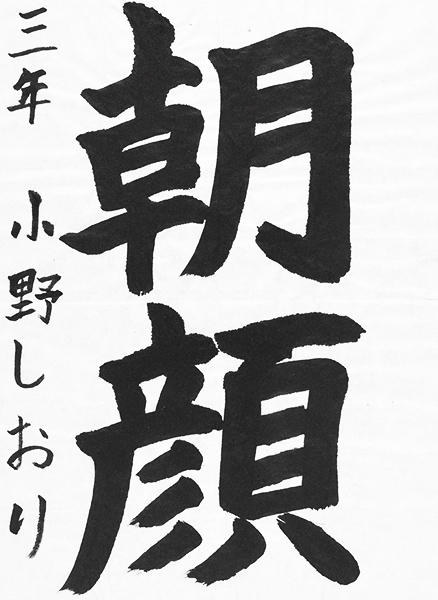 朝顔
三年 小野しおり